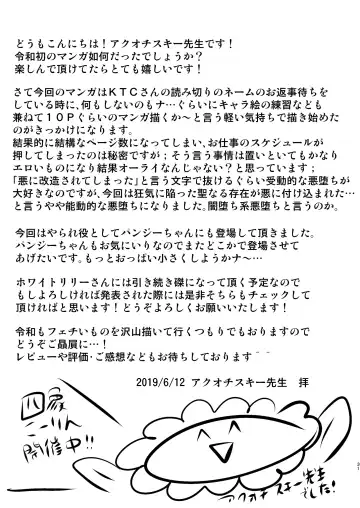 どうもこんにちは！アクオチスキー先生です！
令和初のマンガ如何だったでしょうか？
楽しんで頂けてたらとても嬉しいです！
さて今回のマンガはＫＴＣさんの読み切りのネームのお返事待ちを
している時に、何もしないのもナ…ぐらいにキャラ絵の練習なども
兼ねて１０Ｐぐらいのマンガ描くか～と言う軽い気持ちで描き始めた
のがきっかけになります。
結果的に結構なページ数になってしまい、お仕事のスケジュールが
押してしまったのは秘密ですが；そう言う事情は置いといてもかなり
エロいものになり結果オーライなんじゃない？と思っています；
「悪に改造されてしまった」と言う文字で抜けるぐらい受動的な悪堕ちが
大好きなのですが、今回は狂気に陥った聖なる存在が悪に付け込まれた…
と言うやや能動的な悪堕ちになりました。闇堕ち系悪堕ちと言うのか。
今回はやられ役としてパンジーちゃんにも登場して頂きました。
パンジーちゃんもお気にいりなのでまたどこかで登場させて
あげたいです。もっとおっぱい小さくしようかナ～…
ホワイトリリーさんには引き続き磔になって頂く予定なので
もしよろしければ発表された際には是非そちらもチェックして
頂ければと思います！どうぞよろしくお願いいたします！
令和もフェチいものを沢山描いて行くつもりでもおりますので
どうぞご贔屓に…！
レビューや評価・ご感想などもお待ちしております＾＾
2019/6/12 アクオチスキー先生 拝
開催中!!
アクオチスキー先生
でした！
31